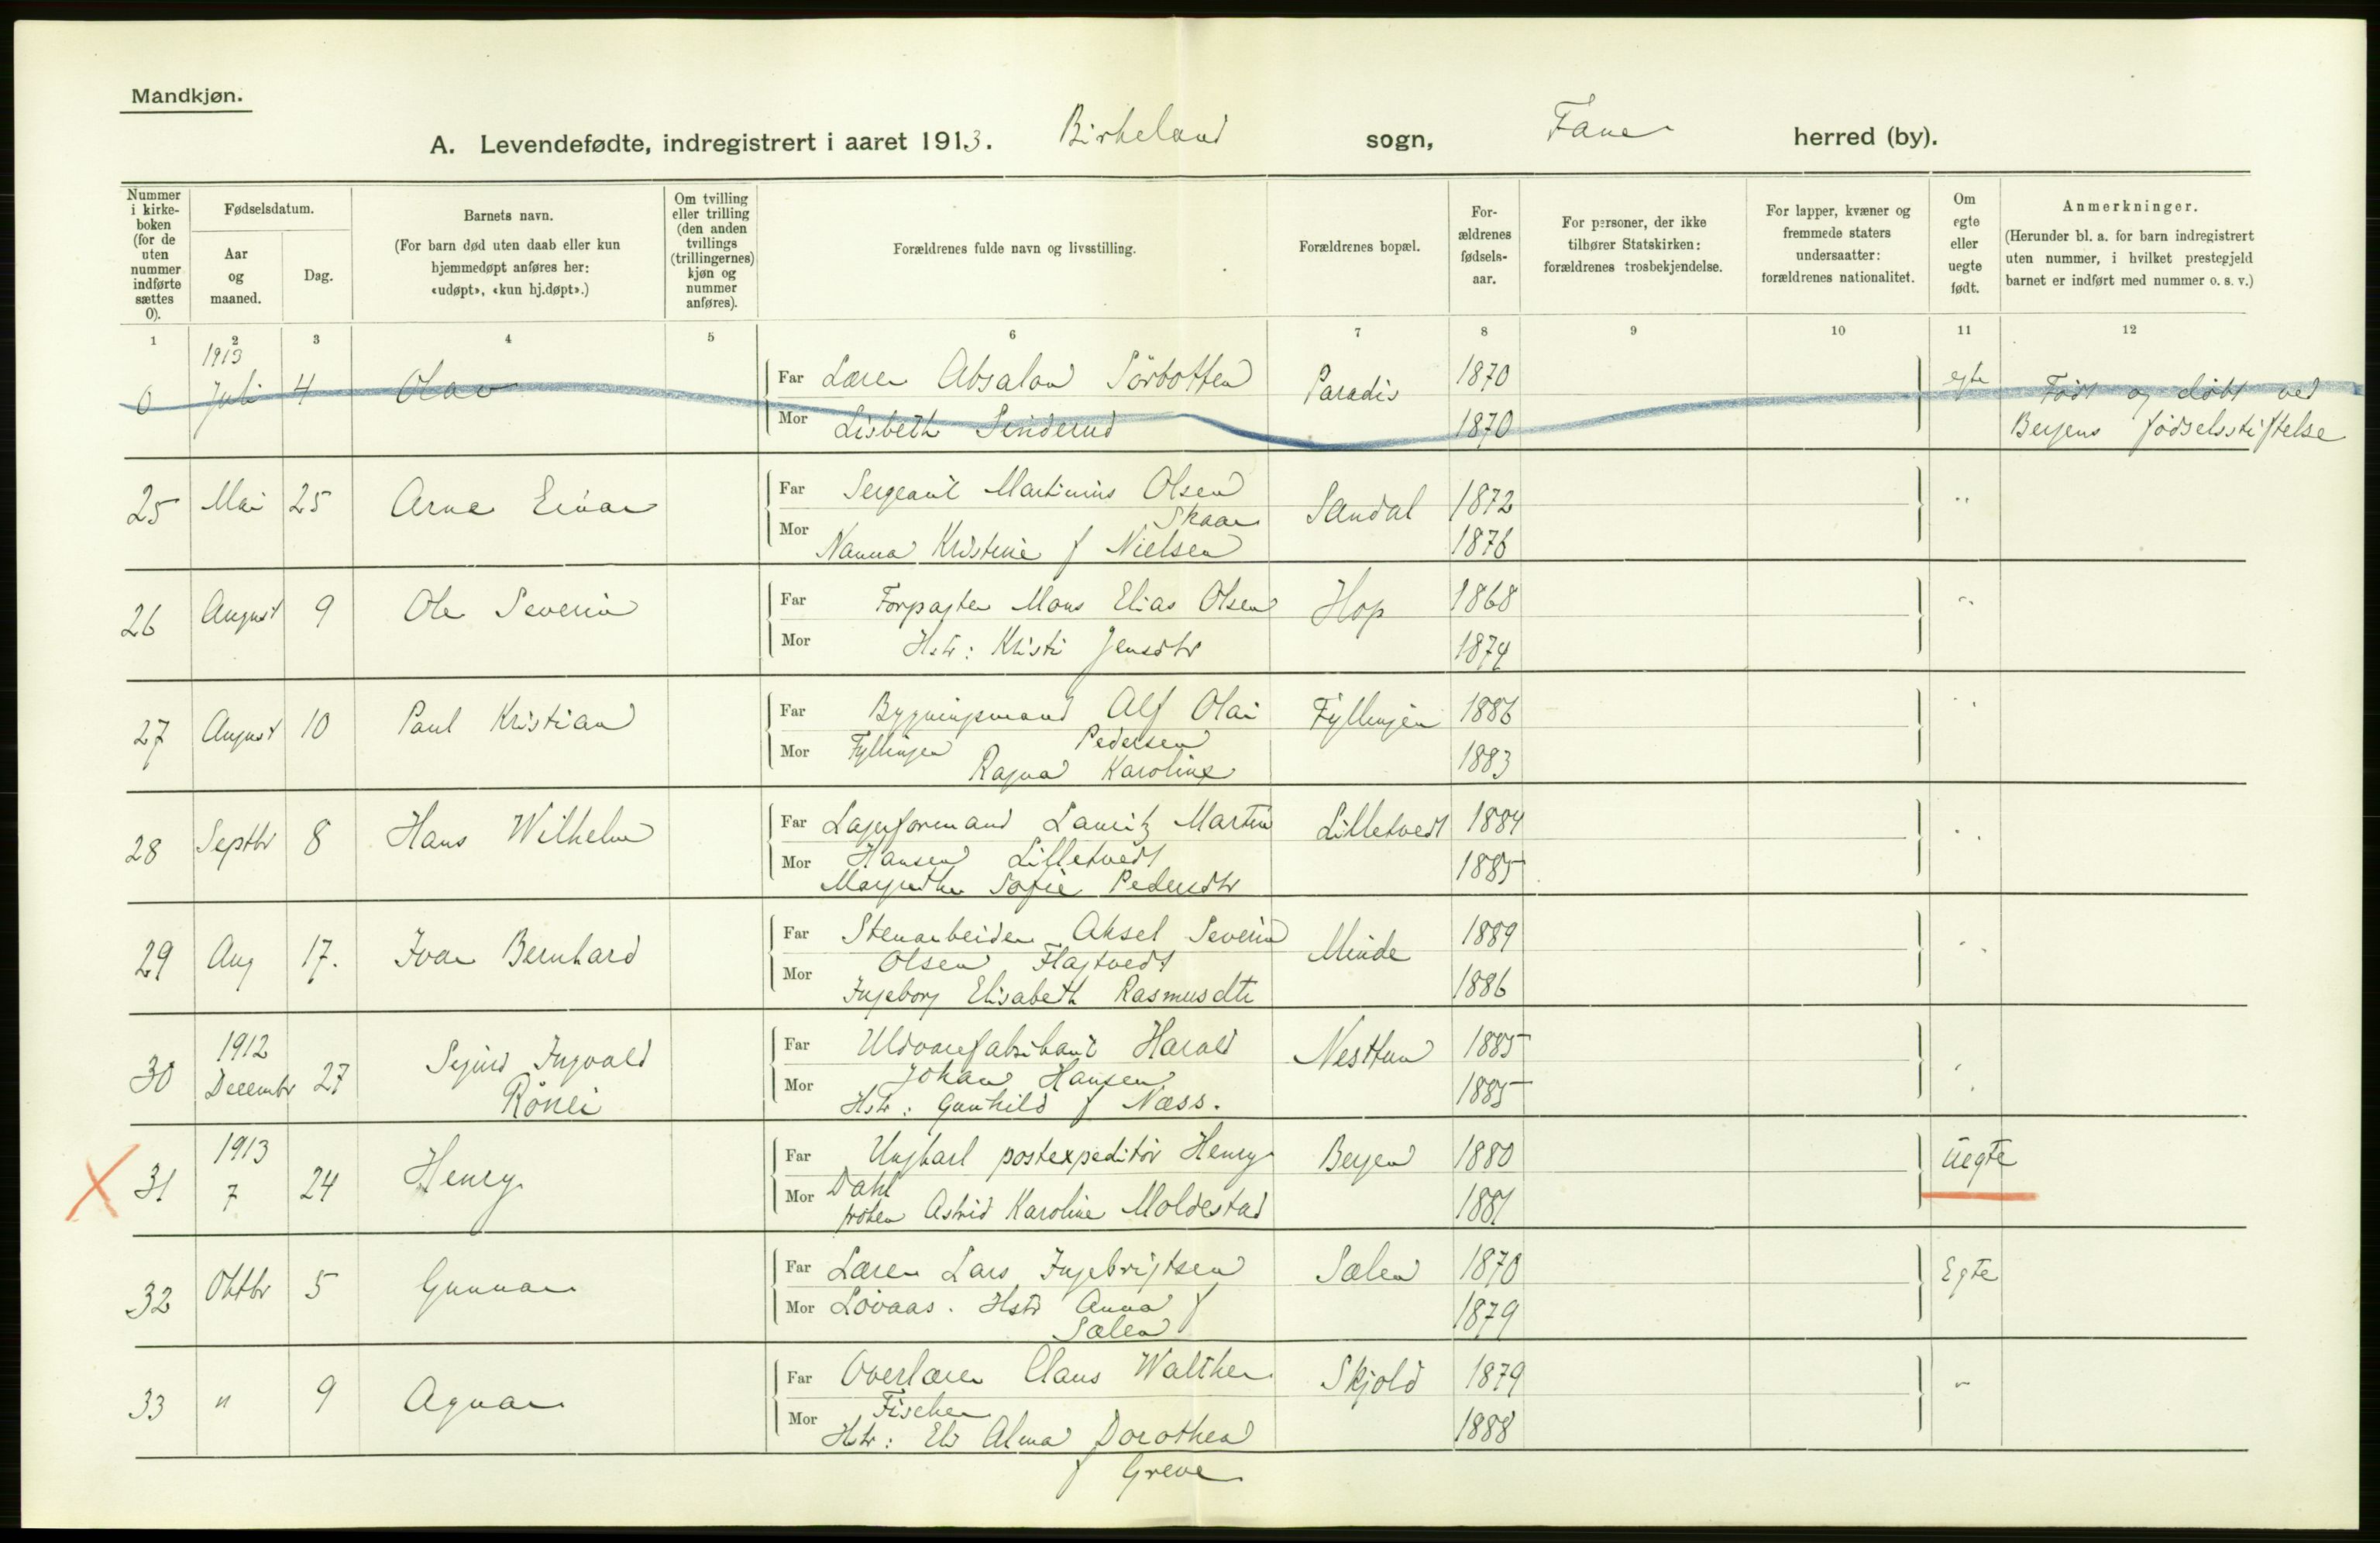 Mandkjøn.
A. Levendefødte, indregistrert i aaret 1913. Birkeland sogn, Fane herred (by).
Nummer i kirkeboken (for de uten nummer indførte sættes 0).
Fødselsdatum.
Aar og maaned.
Dag.
Barnets navn.
(For barn død uten daab eller kun hjemmedøpt anføres her: «udøpt», «kun hj.døpt».)
Om tvilling eller trilling (den anden tvillings (trillingernes) kjøn og nummer anføres).
Forældrenes fulde navn og livsstilling.
Forældrenes bopæl.
Forældrenes fødselsaar.
For personer, der ikke tilhører Statskirken: forældrenes trosbekjendelse.
For lapper, kvæner og fremmede staters undersaatter: forældrenes nationalitet.
Om egte eller uegte født.
Anmerkninger.
(Herunder bl. a. for barn indregistrert uten nummer, i hvilket prestegjeld barnet er indført med nummer o. s. v.)
1 2 3 4 5 6 7 8 9 10 11 12
1913
0 Juli 4 Olav Far Lærer Absalon Sörbotten Paradis 1870 egte Født og döbt ved
Mor Lisbeth 1870 Bergens födselsstiftelse
25 Mai 25 Arne Einar Far Sergeant Martinius Olsen Sandal 1872 "
Skaar
Mor Nanna Kristine f Nielsen 1876
26 August 9 Ole Severin Far Forpagter Mons Elias Olsen Hop 1868 "
Mor Hstr: Kristi Jensdtr 1874
27 August 10 Paul Kristian Far Bygningsmand Alf Olai Fyllingen 1886 "
Pedersen
Mor Fyllingen Ragna Karoline 1883
28 Septbr 8 Hans Wilhelm Far Lagerformand Lauritz Martin Lilletvedt 1884 "
Hansen Lilletvedt
Mor Margrethe Sofie Pedersdtr 1885
29 Aug 17. Ivar Bernhard Far Stenarbeider Aksel Severin Minde 1889 "
Olsen Flagtvedt
Mor Ingeborg Elisabeth Rasmusdtr 1886
1912
30 Decembr 27 Sigurd Ingvald Far Uldvarefabrikant Harald Nesttun 1885 "
Rönei Johan Hansen
Mor Hstr: Gunhild f Næss. 1885
1913
31 7 24 Henry Far Ungkarl postexpeditör Henry Bergen 1880 Uegte
Dahl
Mor fröken Astrid Karoline Moldestad 1881
32 Oktbr 5 Gunnar Far Lærer Lars Ingebrigtsen Sælen 1870 Egte
Mor Lövaas. Hstr Anna f 1879
Sælen
33 " 9 Agnar Far Overlærer Claus Walther Skjold 1879 "
Fischer
Mor Hstr: Els Alma Dorothea 1888
f Greve